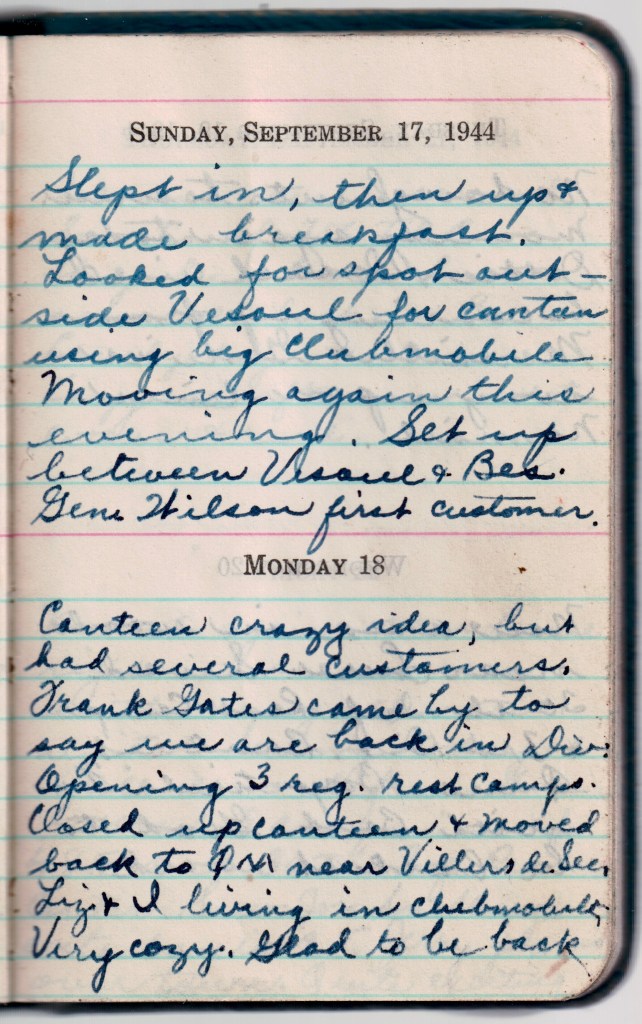 SUNDAY, SEPTEMBER 17, 1944
Slept in, then up &
made breakfast.
Looked for spot out-
side Vesoul for canteen
using big Clubmobile
Moving again this
evening. Set up
between Vesoul & Bes.
Gene Wilson first customer.
MONDAY 18
Canteen crazy idea, but
had several customers.
Frank Gates came by to
say we are back in Div.
Opening 3 reg. rest camps.
Closed up canteen & moved
back to QM near Villers de
Liz & I living in clubmobile,
Very cozy. Glad to be back